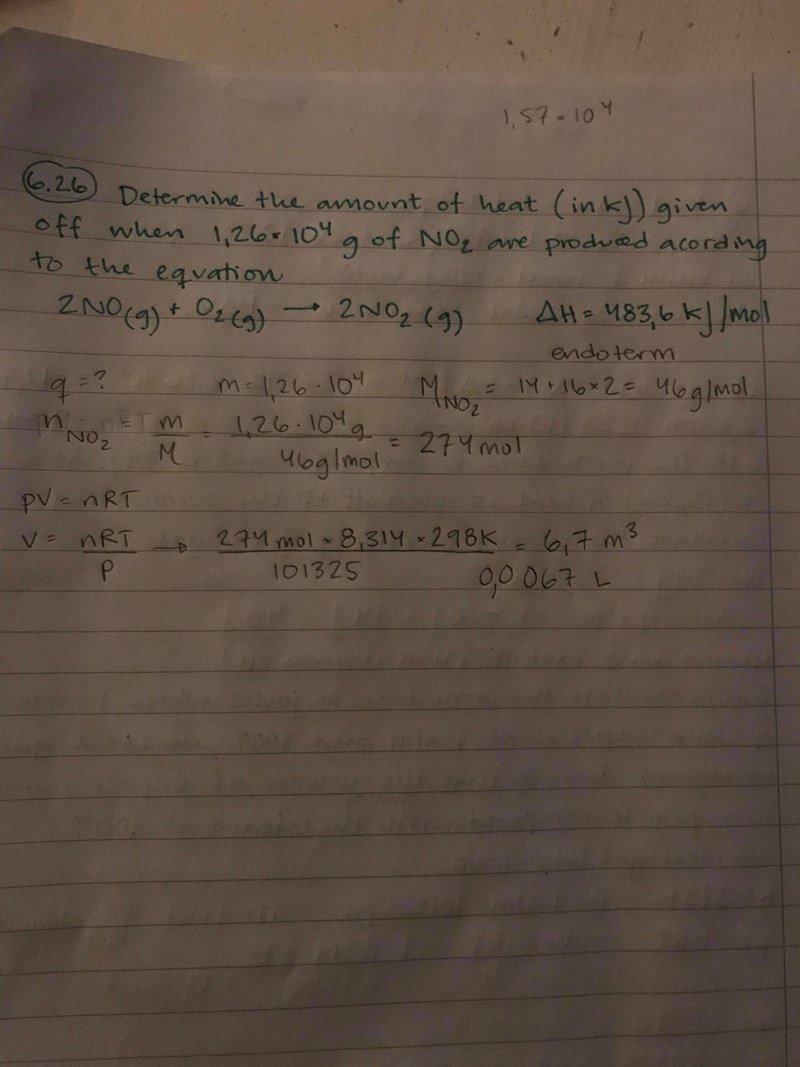 1,57 × 10⁴
6.26 Determine the amount of heat (in kJ) given
off when 1,26 × 10⁴ g of NO₂ are produced acording
to the equation
2NO(g) + O₂(g) → 2NO₂(g) ΔH = 483,6 kJ/mol
endoterm
q = ? m = 1,26 · 10⁴ M NO₂ = 14 + 16 × 2 = 46 g/mol
n NO₂ = m/M = 1,26 · 10⁴ g / 46 g/mol = 274 mol
pV = nRT
V = nRT/P → 274 mol × 8,314 × 298K / 101325 = 6,7 m³
0,0067 L